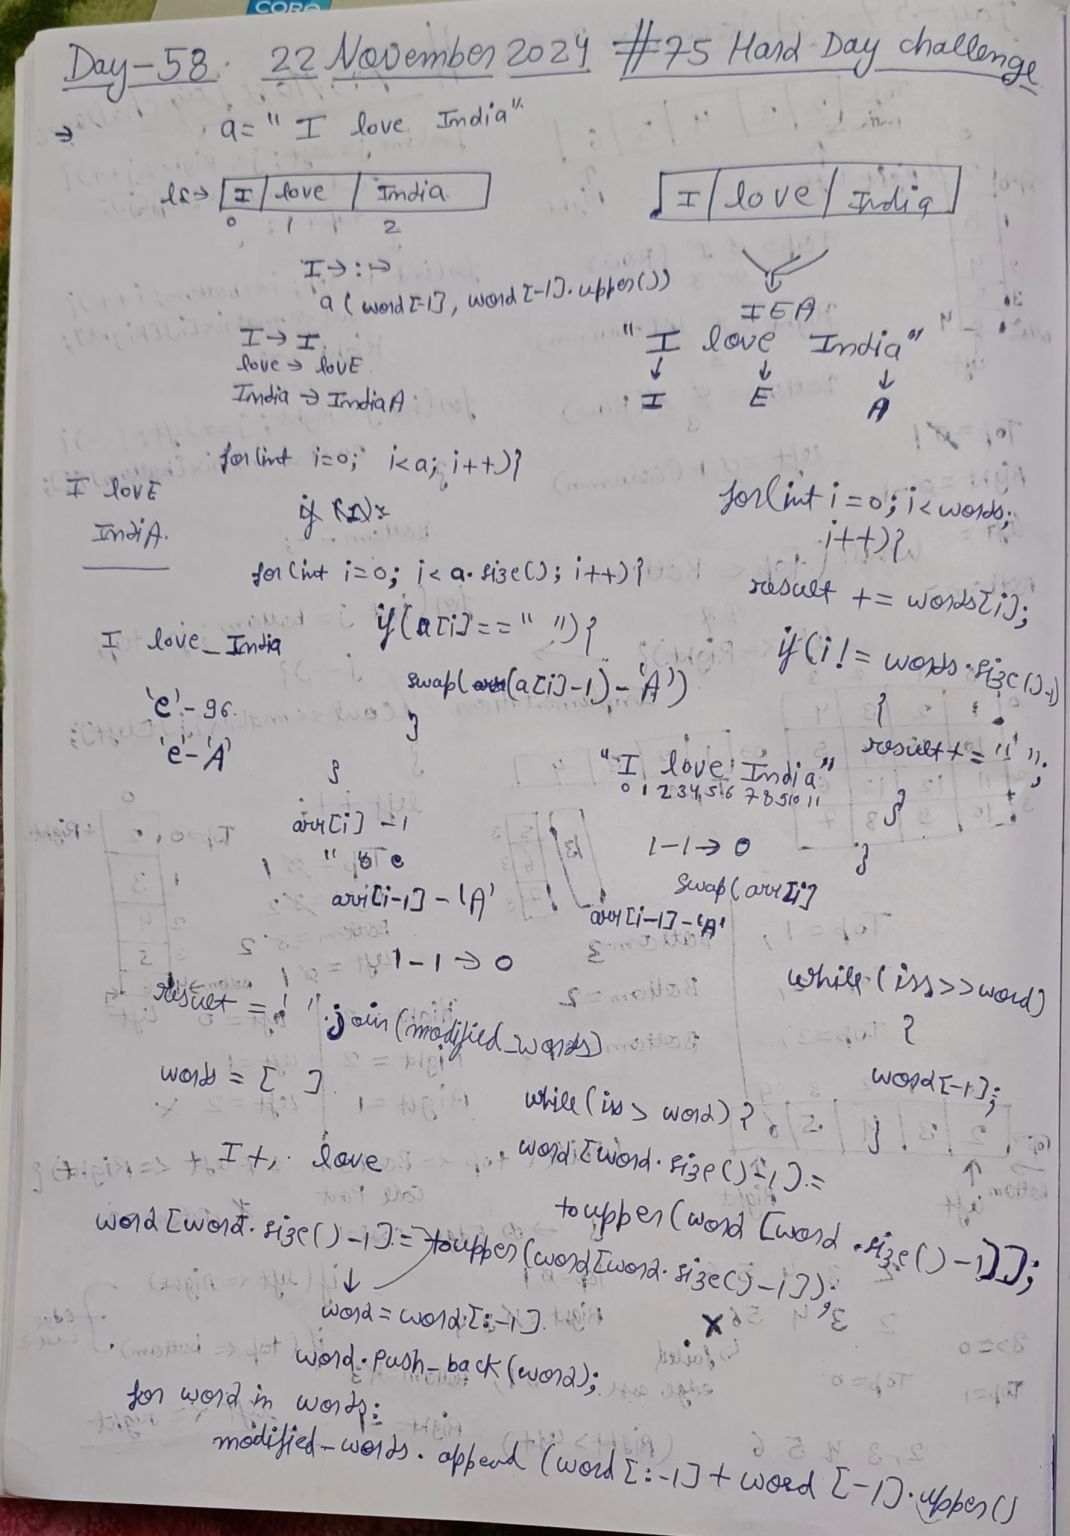 CORO
Day-58. 22 November 2024 #75 Hard Day challenge
→ a = " I love India"
ls → I love India
0 1 2
I love India
I → : →
a (word[-1], word[-1].upper())
IEA
I → I
love → lovE
India → IndiaA
"I love India"
↓ ↓ ↓
I E A
for(int i=0; i<a; i++){
I lovE
IndiA.
for(int i=0; i<words;
i++){
result += words[i];
if(i != words.size()-1)
{
result += " ";
}
}
for(int i=0; i<a.size(); i++){
if(a[i]==" "){
swap((a[i]-1)-'A'))
}
}
I love_India
'e'-96.
'e'-'A'
"I love India"
arr[i] -1
arr[i-1] - 'A'
1-1→0
1-1→0
swap(arr[i]
arr[i-1]-'A'
result = " ".join(modified_words)
words = [ ]
I +, love
while(iss>>word)
{
word[-1];
}
while(is > word){
word[word.size()-1].=
toupper(word[word.size()-1]];
word[word.size()-1].= toupper(word[word.size()-1]);
↓
word = word[:-1].
x
word.push_back(word);
for word in words:
modified_words.append (word[:-1] + word[-1].upper()